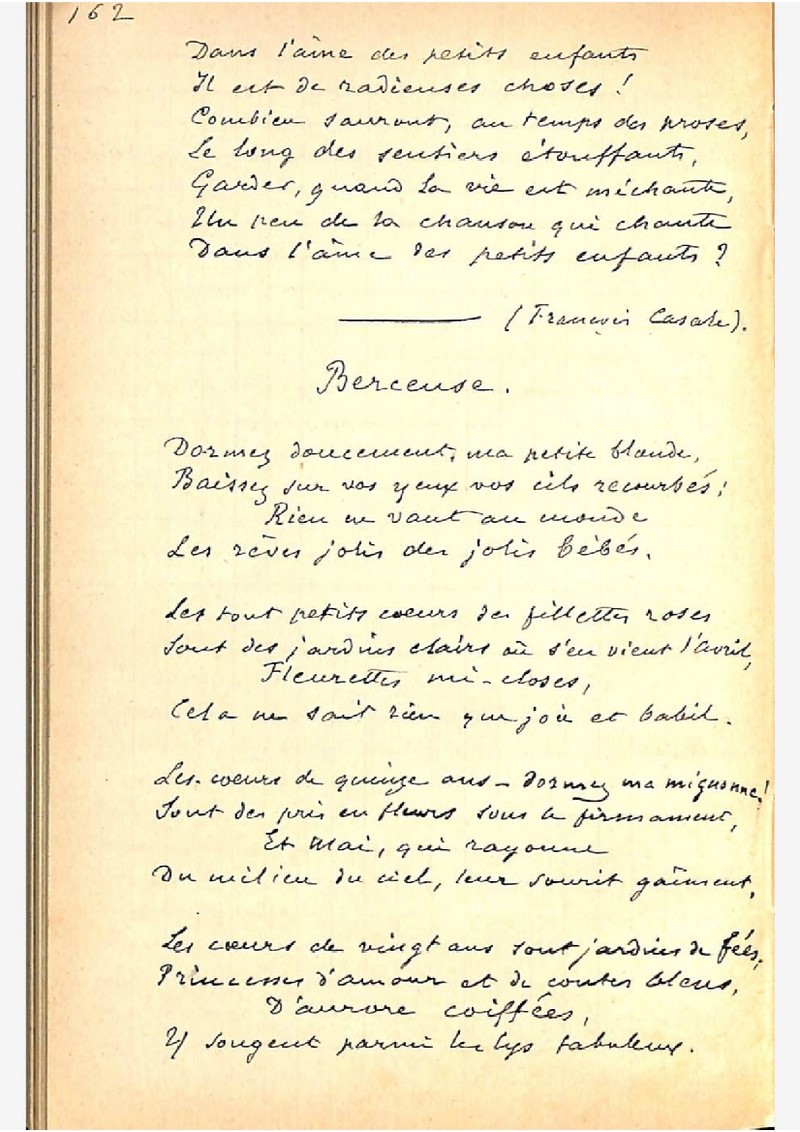 162
Dans l'âme des petits enfants
Il est de radieuses choses !
Combien sauront, au temps des proses,
Le long des sentiers étouffants,
Garder, quand la vie est méchante,
Un peu de la chanson qui chante
Dans l'âme des petits enfants ?
(François Casale).
Berceuse.
Dormez doucement, ma petite blonde,
Baissez sur vos yeux vos cils recourbés ;
Rien ne vaut au monde
Les rêves jolis des jolis bébés.
Les tout petits cœurs des fillettes roses
Sont des jardins clairs où s'en vient l'avril,
Fleurettes mi-closes,
Cela ne sait rien que joie et babil.
Les cœurs de quinze ans – dormez ma mignonne !
Sont des prés en fleurs sous le firmament,
Et Mai, qui rayonne
Du milieu du ciel, leur sourit gaîment.
Les cœurs de vingt ans sont jardins de fées ;
Princesses d'amour et de contes bleus,
D'aurore coiffées,
Y songent parmi les lys fabuleux.